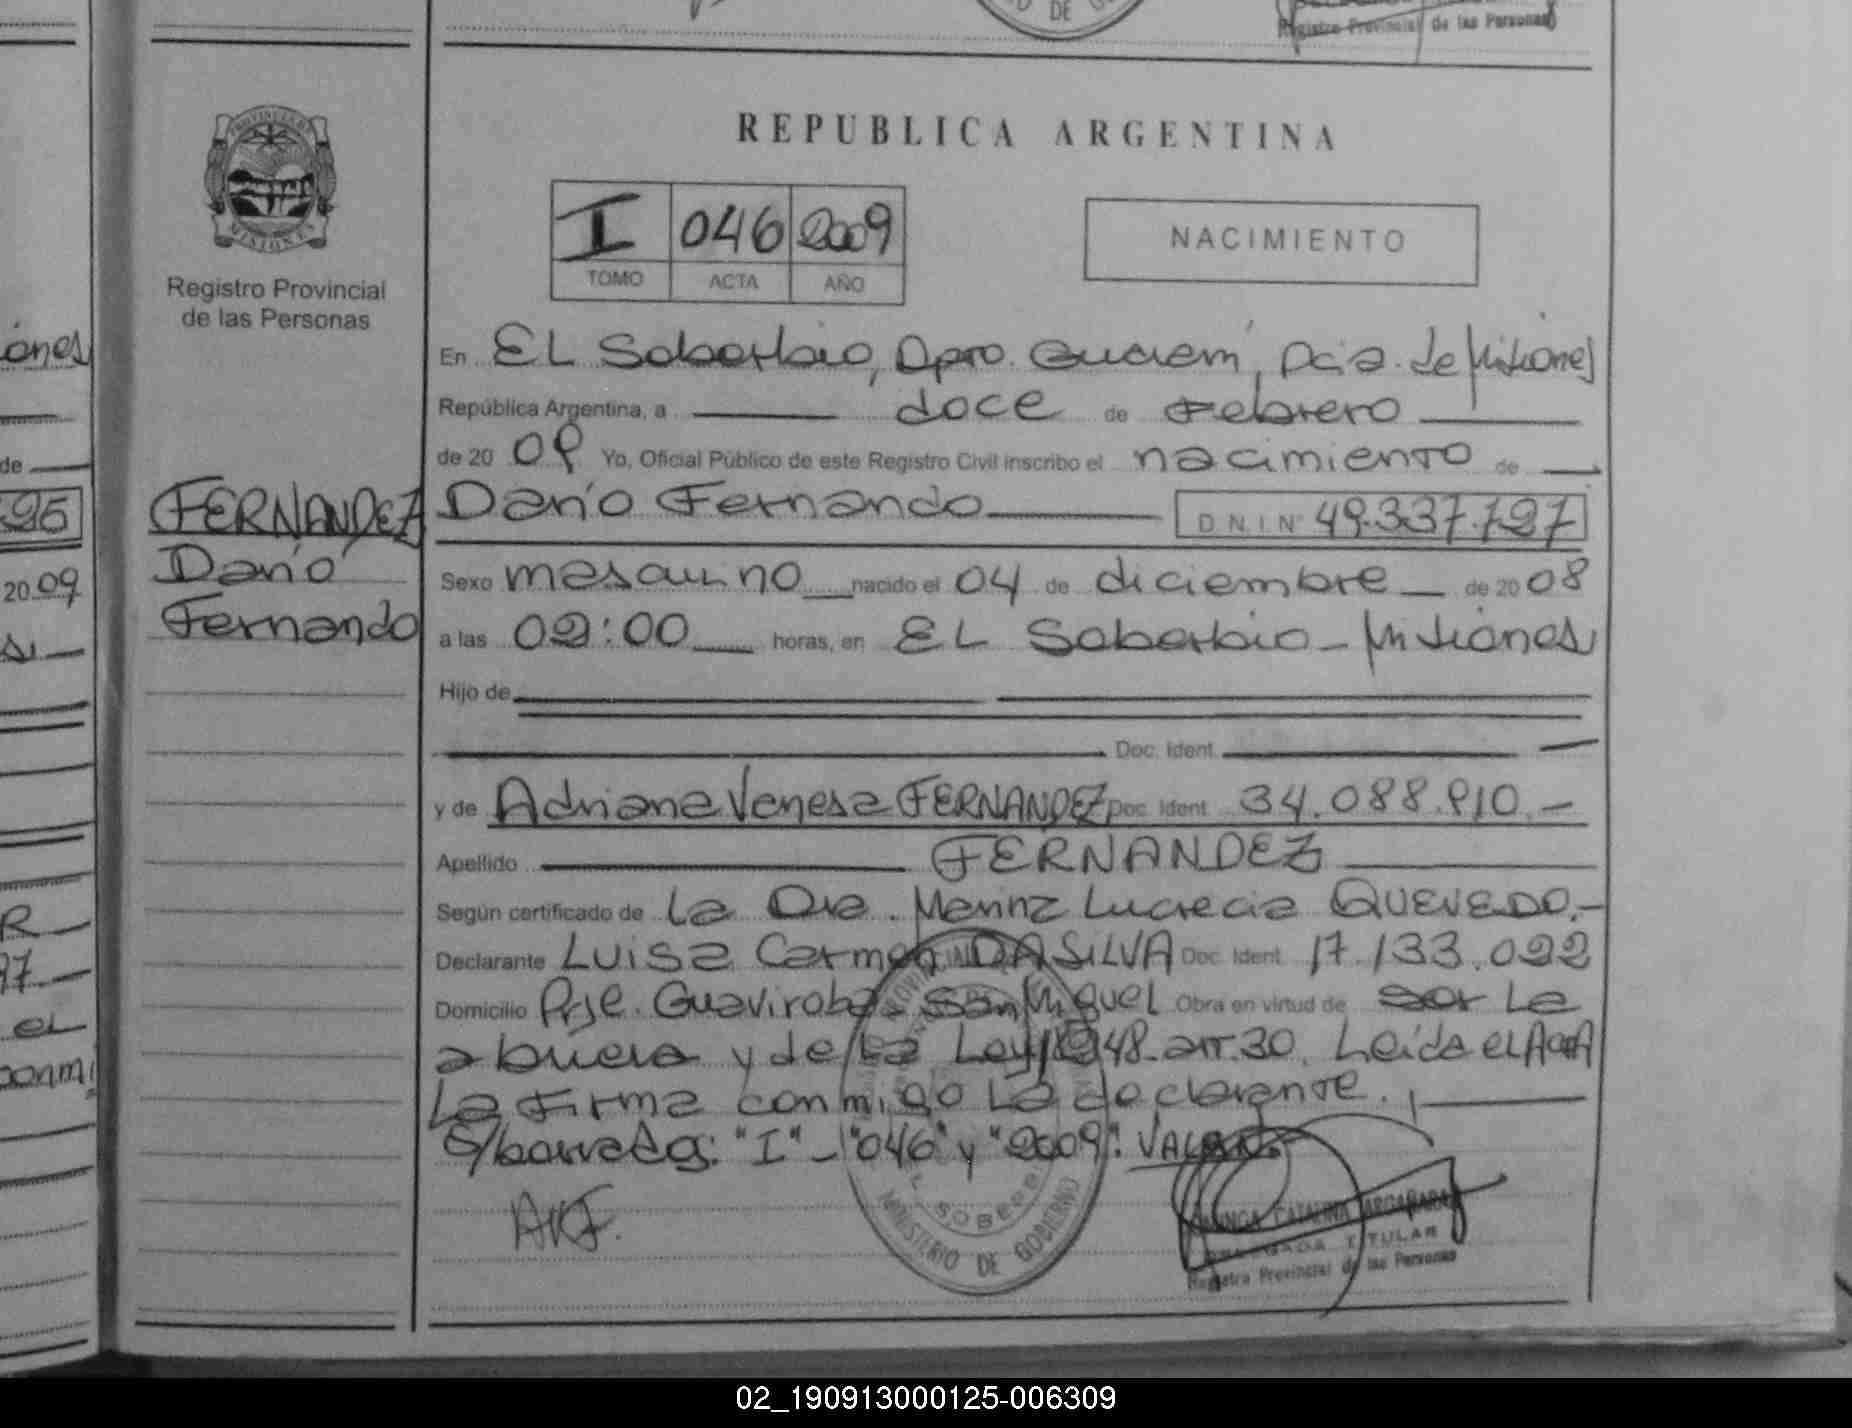 Registro Provincial de las Personas
REPUBLICA ARGENTINA
PROVINCIA DE
MISIONES
Registro Provincial
de las Personas
I 046 2009
TOMO ACTA AÑO
NACIMIENTO
En EL Soberbio, Dpto. Guaraní, Pcia. de Misiones
República Argentina, a doce de Febrero
de 20 09 Yo, Oficial Público de este Registro Civil inscribo el nacimiento de
Darío Fernando D.N.I.Nº 49.337.727
FERNANDEZ
Darío
Fernando
Sexo masculino nacido el 04 de diciembre de 20 08
a las 02:00 horas, en EL Soberbio - Misiones
Hijo de
Doc. Ident.
y de Adriana Vanesa FERNANDEZ Doc. Ident. 34.088.910.-
Apellido FERNANDEZ
Según certificado de La Dra. Marina Lucrecia QUEVEDO.-
Declarante Luisa Carmen DA SILVA Doc. Ident. 17.133.022
Domicilio Pje. Guaviroba San Miguel Obra en virtud de ser la
abuela y de la Ley 18248 art. 30. Leída el Acta
La Firma conmigo La declarante.
S/borrado: "I" - "046" y "2009". VALEN.
EL SOBERBIO
MINISTERIO DE GOBIERNO
CATALINA ARGAÑARAZ
TITULAR
Registro Provincial de las Personas
ones
de
95
20 09
R
97.-
el
conmi
02_190913000125-006309